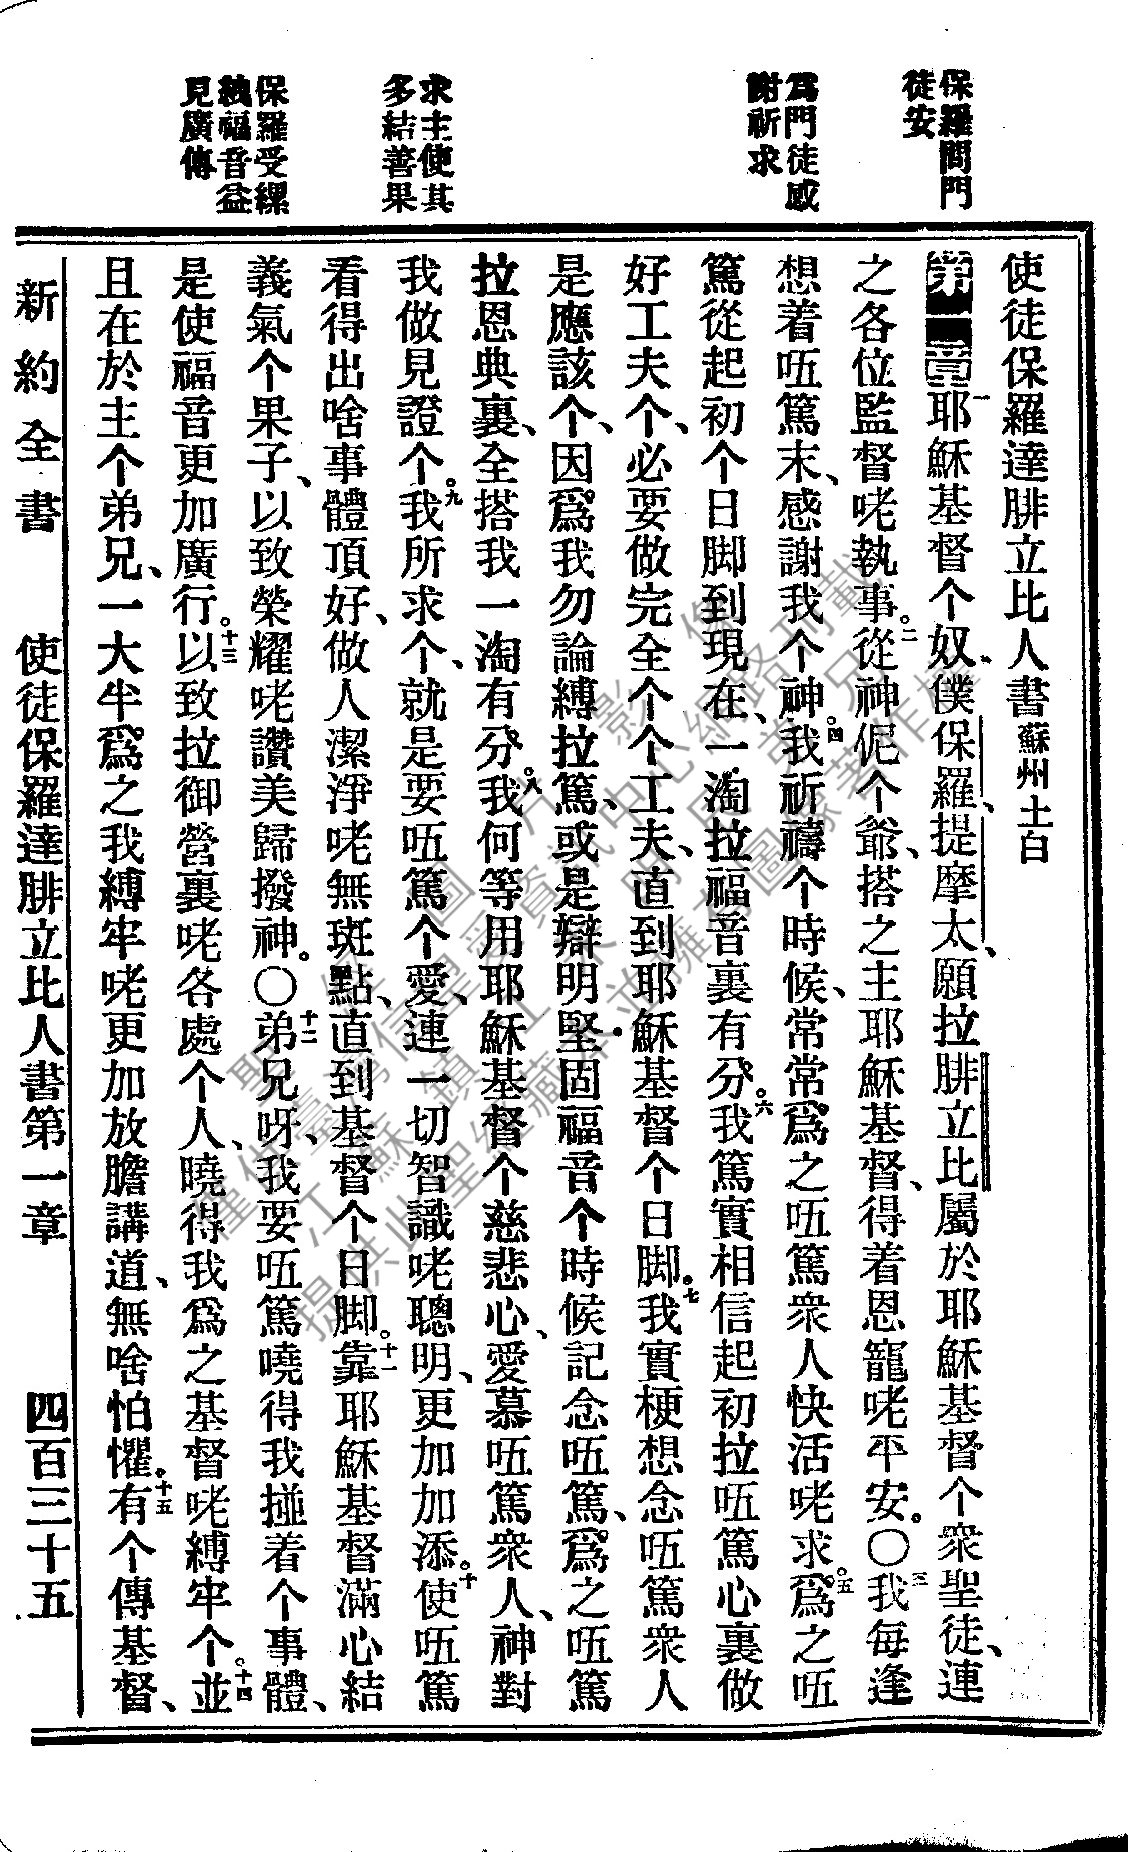 保羅問門
徒安
爲門徒感
謝祈求
求主使其
多結善果
保羅受縲
絏福音益
見廣傳
使徒保羅達腓立比人書蘇州土白
第一章一耶穌基督个奴僕保羅、提摩太、願拉腓立比屬於耶穌基督个衆聖徒、連
之各位監督咾執事。二從神伲个爺、搭之主耶穌基督、得着恩寵咾平安。〇三我每逢
想着㕶篤末、感謝我个神。四我祈禱个時候、常常爲之㕶篤衆人快活咾求。五爲之㕶
篤從起初个日脚到現在、一淘拉福音裏有分。六我篤實相信起初拉㕶篤心裏做
好工夫个、必要做完全个个工夫、直到耶穌基督个日脚。七我實梗想念㕶篤衆人
是應該个、因爲我勿論縛拉篤、或是辯明堅固福音个時候、記念㕶篤、爲之㕶篤
拉恩典裏、全搭我一淘有分。八我何等用耶穌基督个慈悲心、愛慕㕶篤衆人、神對
我做見證个。九我所求个、就是要㕶篤个愛、連一切智識咾聰明、更加加添。十使㕶篤
看得出啥事體頂好、做人潔淨咾無斑點、直到基督个日脚。十一靠耶穌基督滿心結
義氣个果子、以致榮耀咾讚美歸撥神。〇十二弟兄呀、我要㕶篤曉得我㨃着个事體、
是使福音更加廣行。十三以致拉御營裏咾各處个人、曉得我爲之基督咾縛牢个。十四並
且在於主个弟兄、一大半爲之我縛牢咾更加放膽講道、無啥怕懼。十五有个傳基督、
新約全書 使徒保羅達腓立比人書第一章 四百三十五
聖經圖片影像
僅供臺灣信望愛資訊中心網路刊載
江蘇鎮江
提供此聖經藏本並擁有圖像著作權